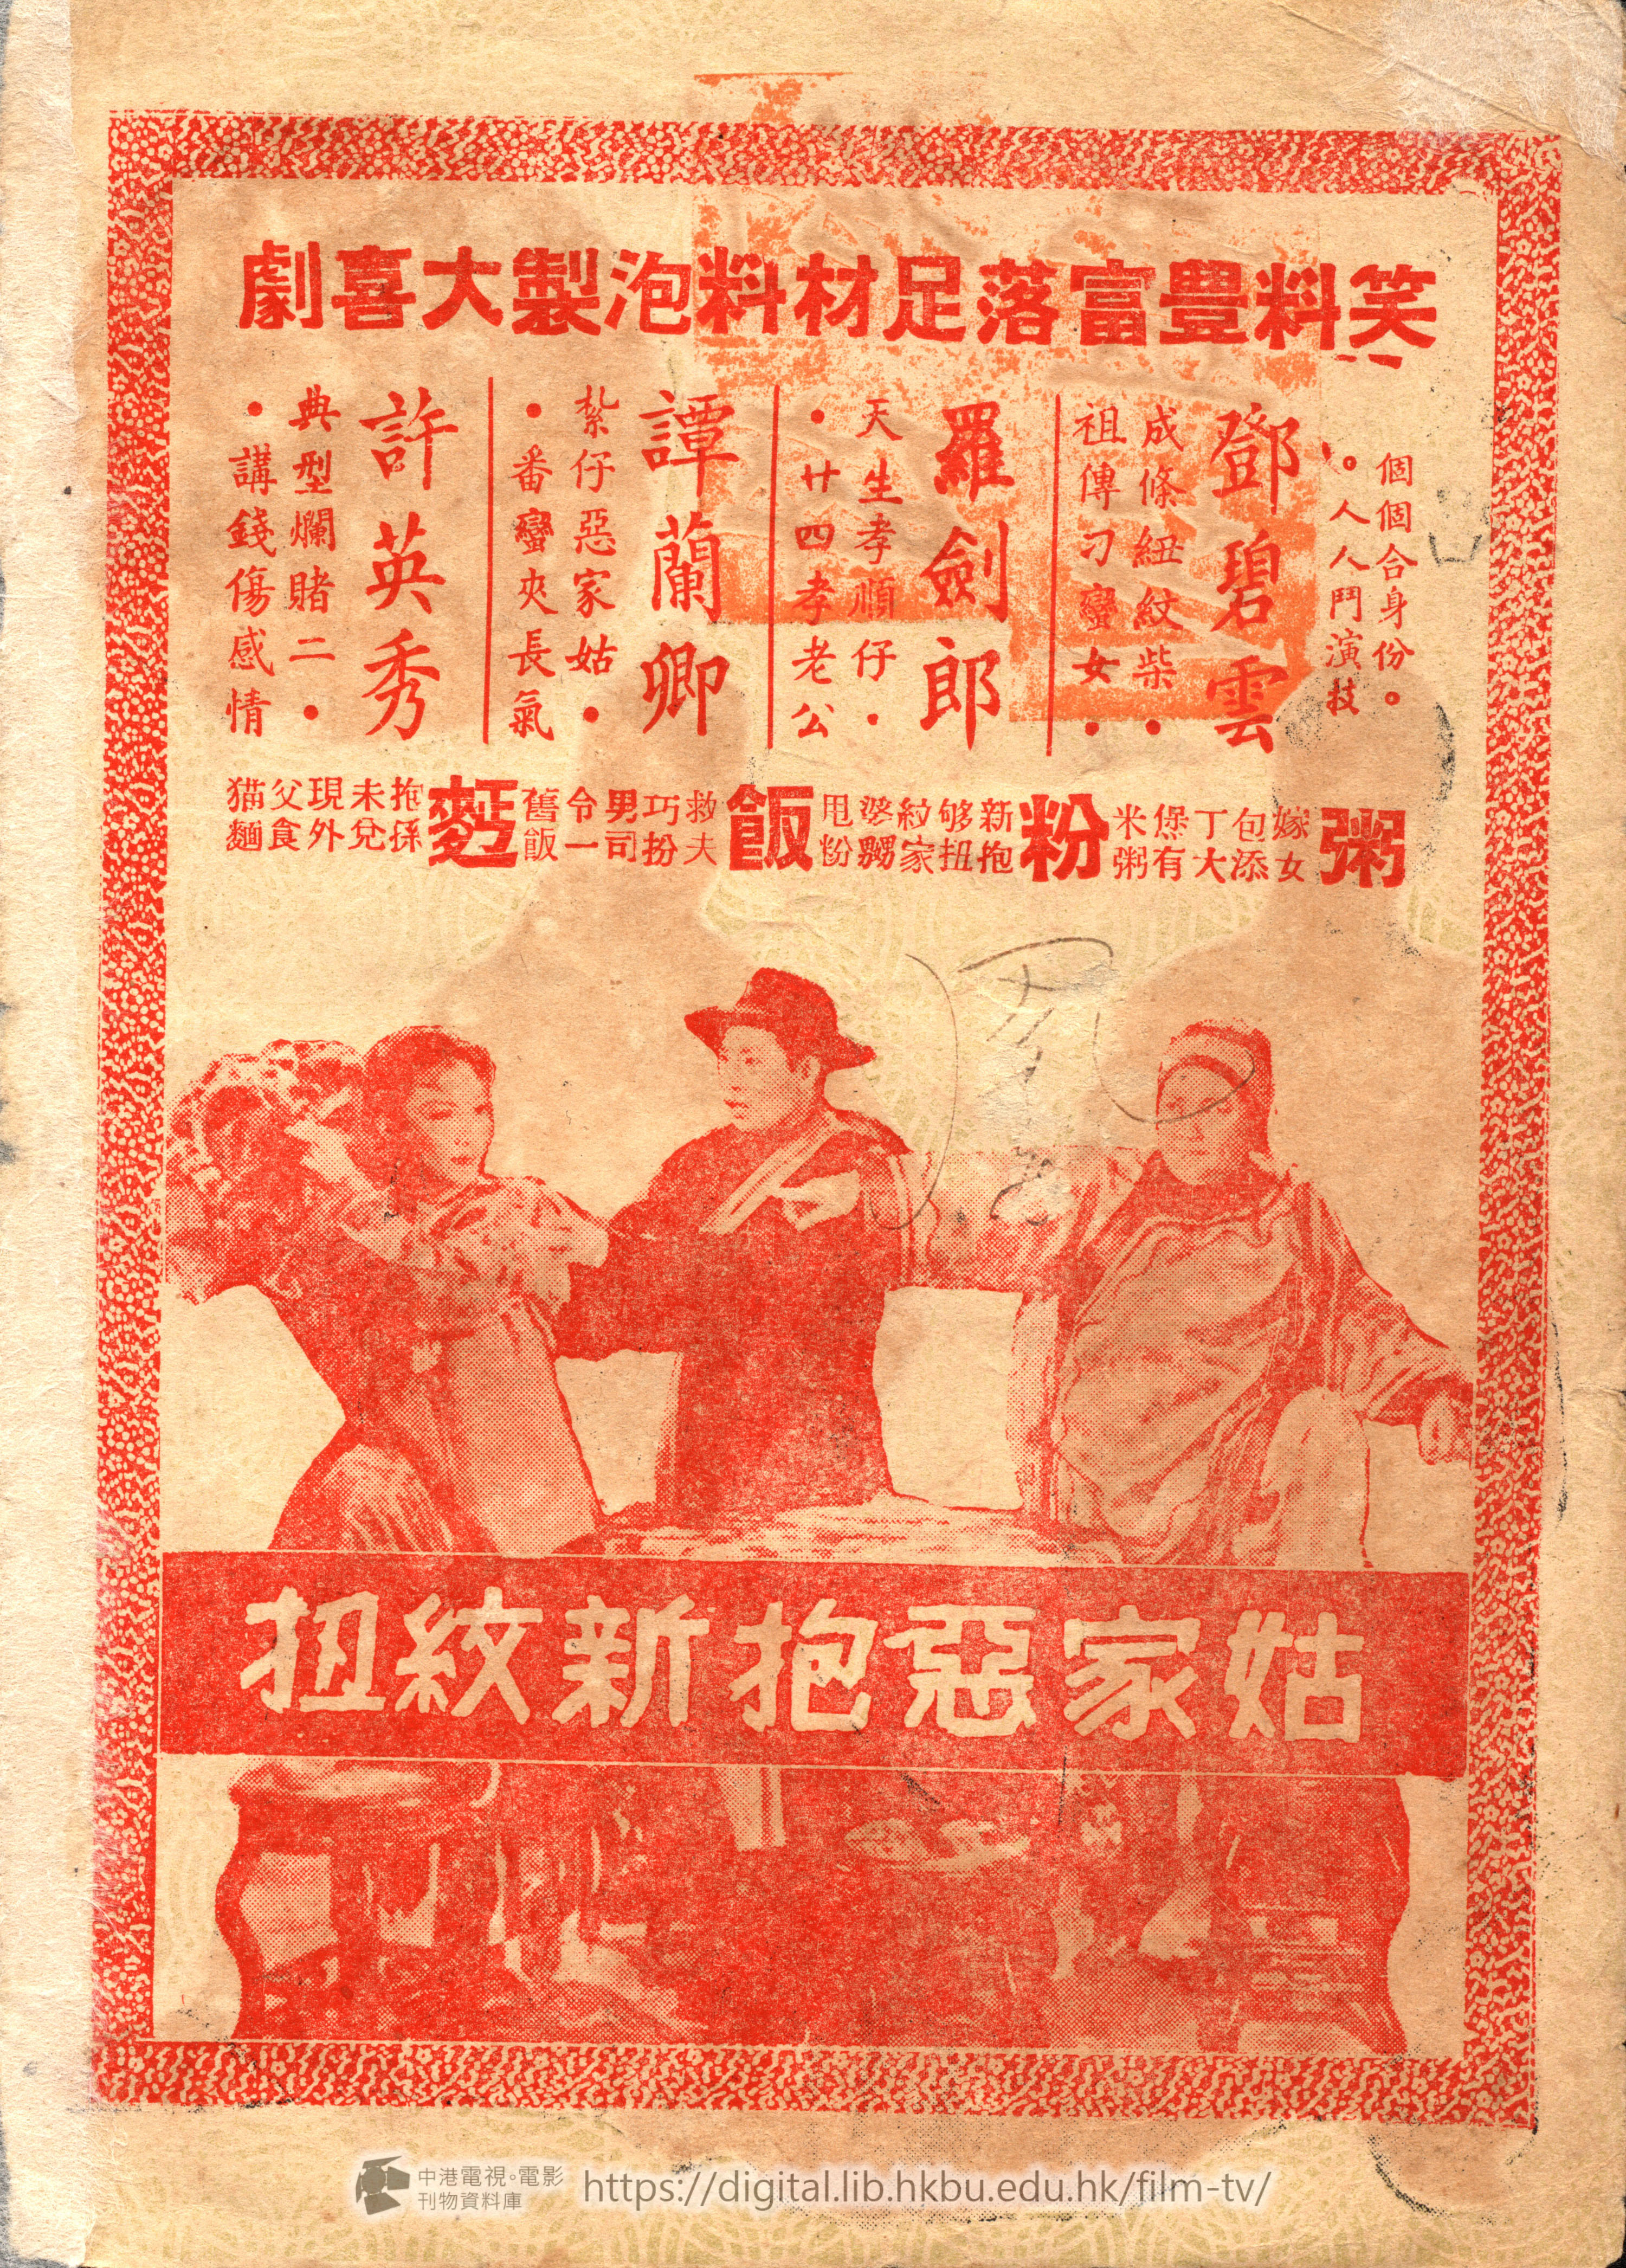 笑料豐富落足材料泡製大喜劇
個個合身份。
人人鬥演技。
鄧碧雲
成條紐紋柴・
祖傳刁蠻女・
羅劍郎
天生孝順仔・
廿四孝老公・
譚蘭卿
紮仔惡家姑・
番蠻夾長氣・
許英秀
典型爛賭二・
講錢傷感情・
粥
嫁女
包添
丁大
煲有
米粥
粉
新抱
够扭
紋家
婆嬲
甩粉
飯
救夫
巧扮
男司
令一
舊飯
麵
抱孫
未兌
現外
父食
猫麵
姑家惡抱新紋扭
中港電視。電影
刊物資料庫
https://digital.lib.hkbu.edu.hk/film-tv/